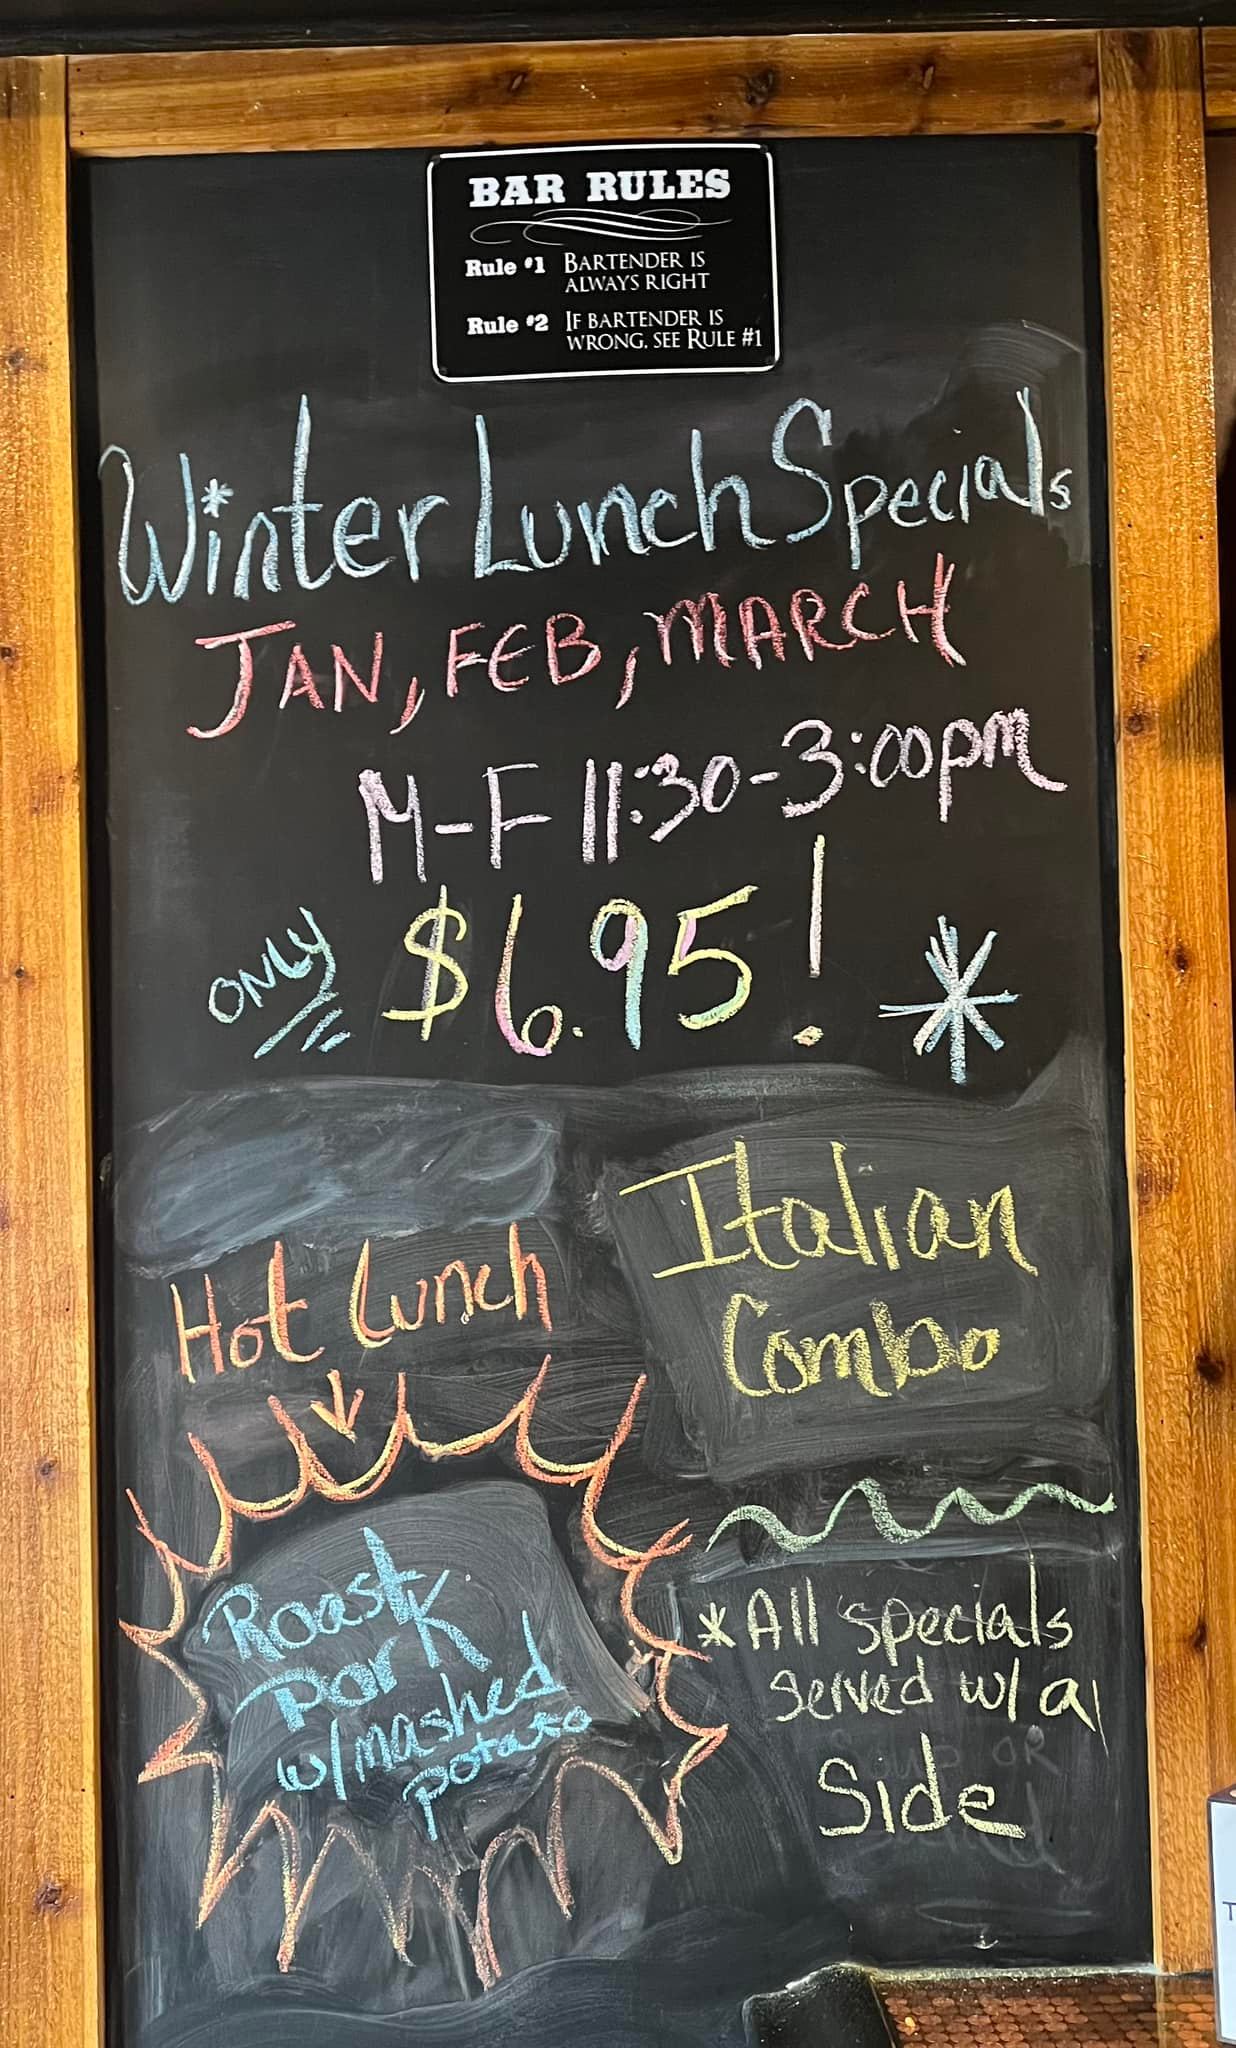 BAR RULES
Rule #1 BARTENDER IS
ALWAYS RIGHT
Rule #2 IF BARTENDER IS
WRONG, SEE RULE #1
Winter Lunch Specials
JAN, FEB, MARCH
M-F 11:30-3:00pm
ONLY $6.95!
Hot Lunch
Roast
Pork
w/mashed
potato
Italian
Combo
*All specials
served w/ a
Side